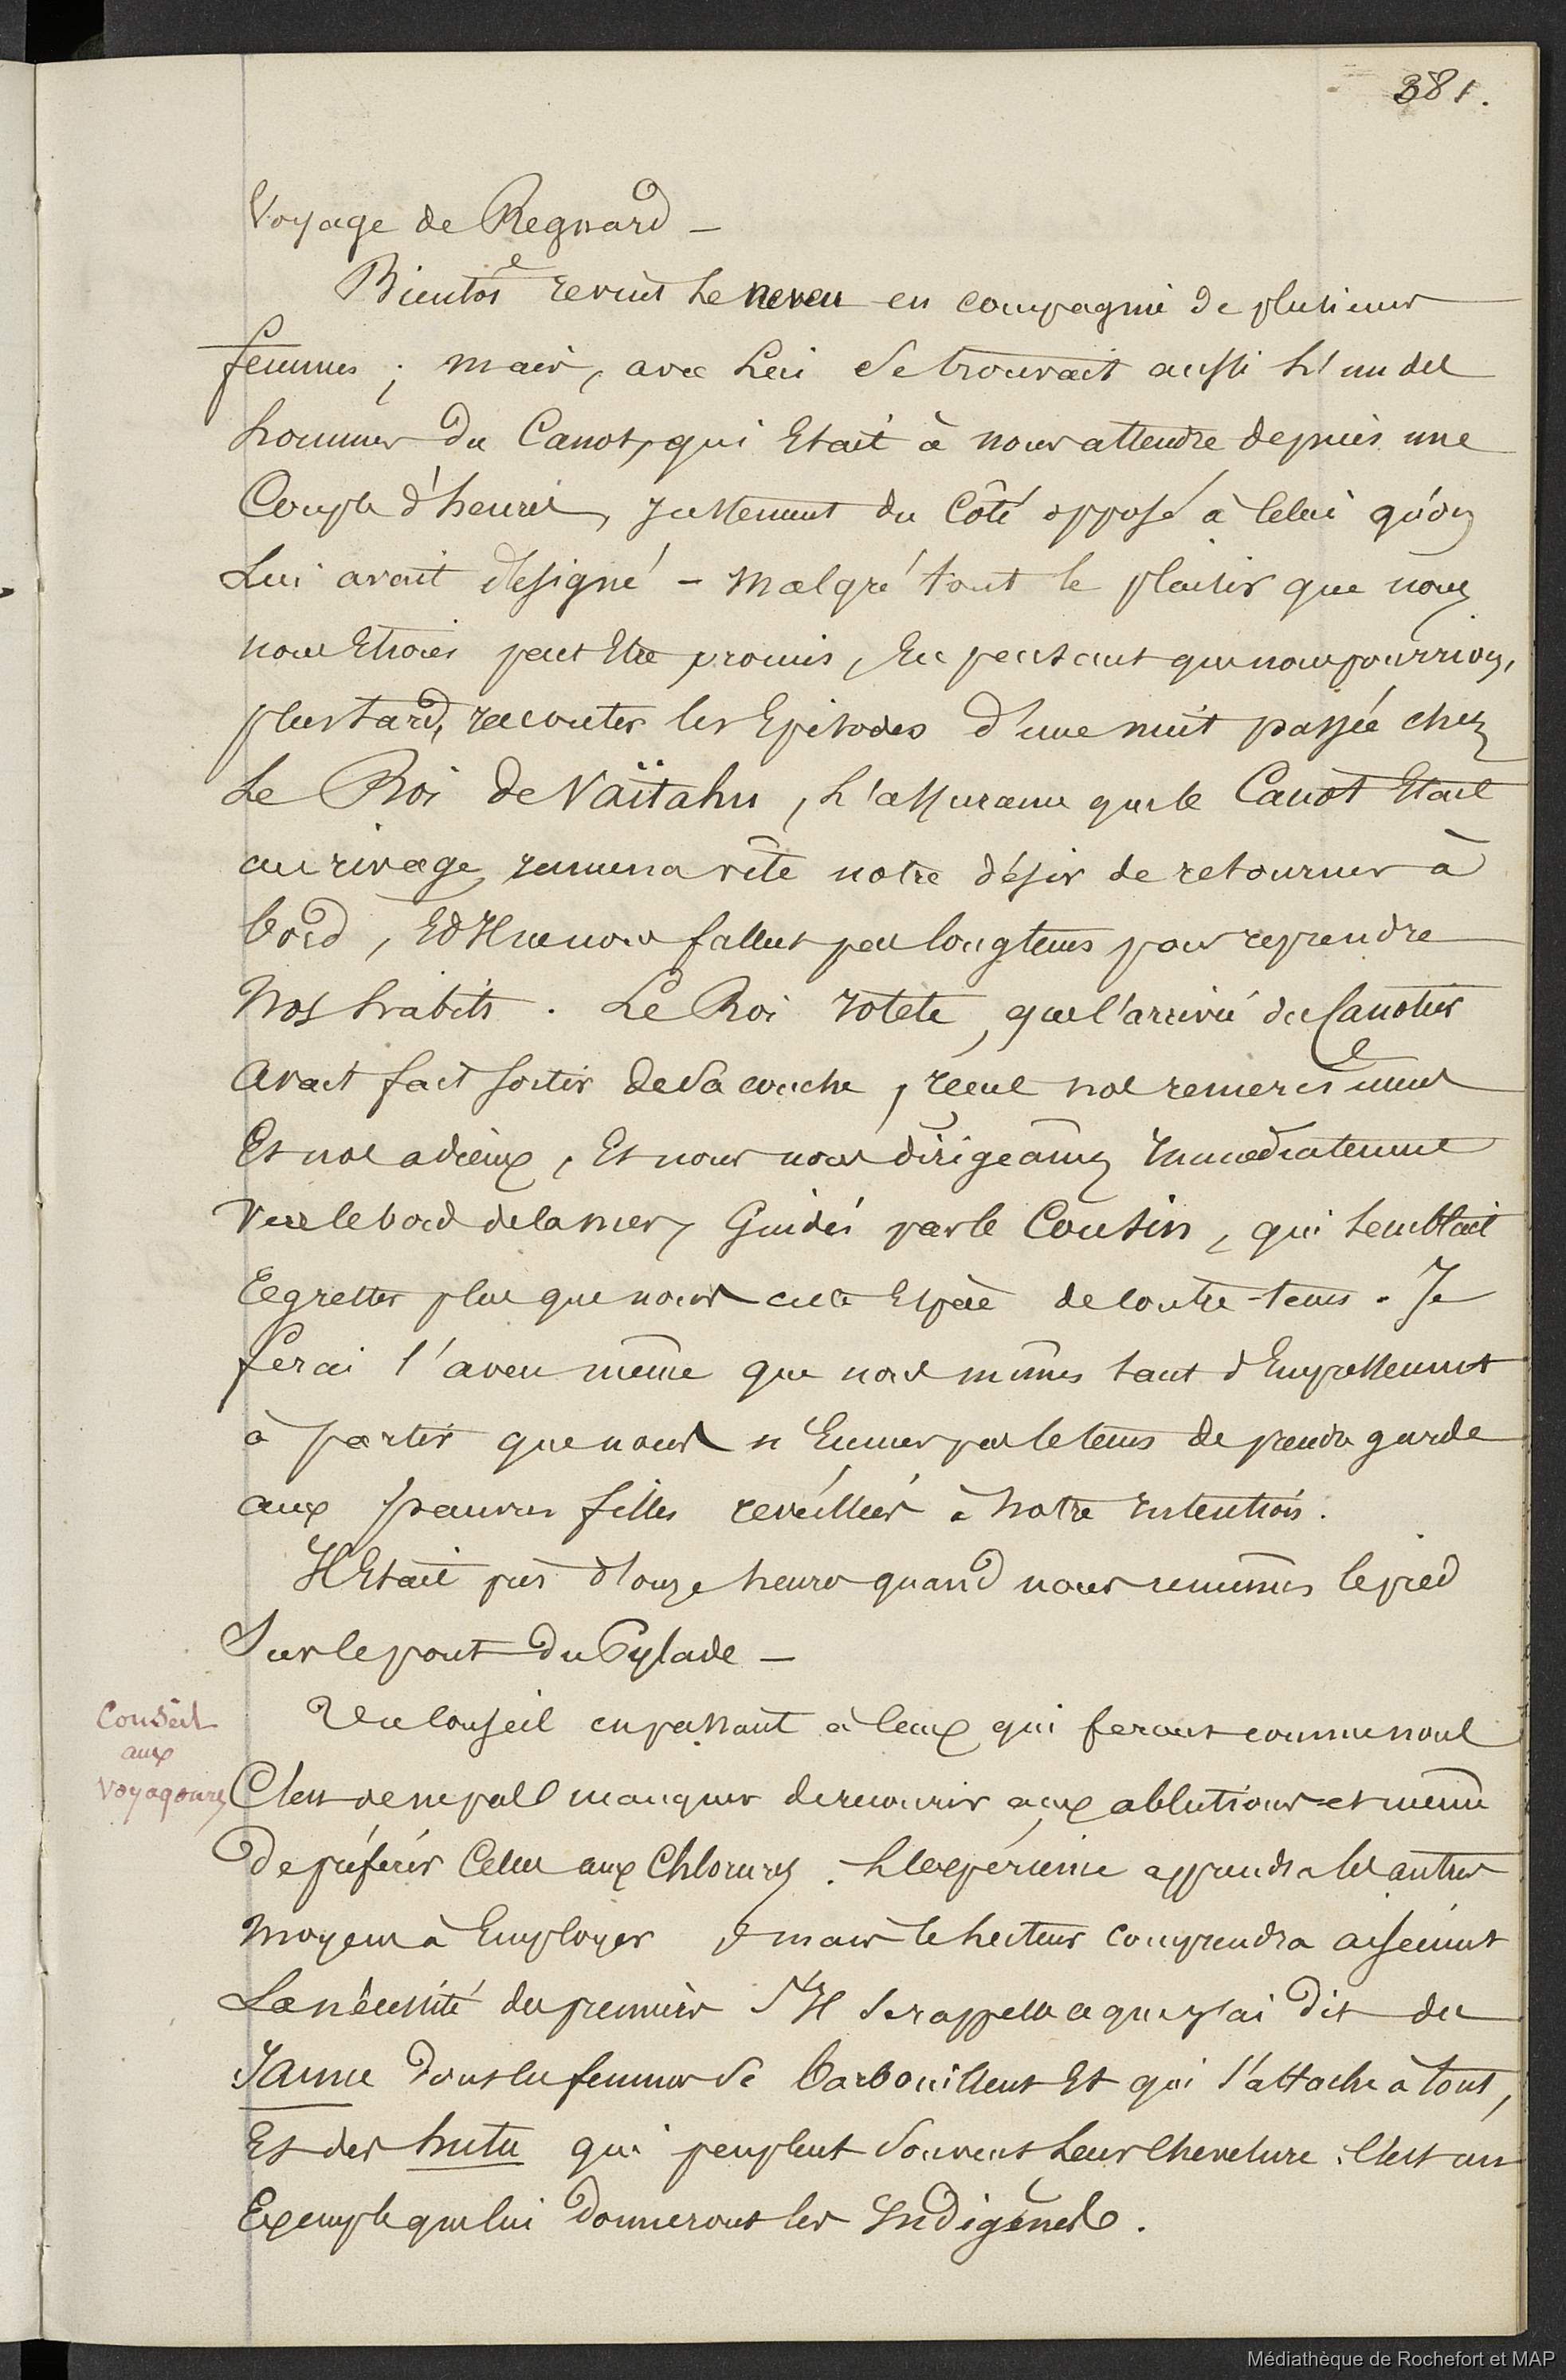 381.
Voyage de Regnard -
Bientôt revint le neveu en compagnie de plusieurs
femmes ; mais, avec lui se trouvait aussi l'un des
hommes du Canot, qui Etait à nous attendre depuis une
Couple d'heures, justement du Côté opposé à Celui qu'on
Lui avait designé - Malgré tout le plaisir que nous
nous Etions peut Etre promis, En pensant que nous pourrions,
plus tard, raconter les Episodes d'une nuit passée chez
Le Roi de Vaïtahu, L'assurance que le Canot Etait
au rivage ramena vite notre désir de retourner à
bord, Et Il ne nous fallut pas longtems pour reprendre
Nos habits. Le Roi Iotété, que l'arrivée du Canotier
Avait fait sortir de sa couche, reçut nos remerciements
Et nos adieux, Et nous nous dirigeâmes Immédiatement
Vers le bord de la mer, Guidés par le Cousin, qui semblait
Regretter plus que nous cette Espèce de contre-tems. Je
ferai l'aveu même que nous mimes tant d'Empressement
à partir que nous n'Eumes pas le tems de prendre garde
aux pauvres filles reveillées à notre Intention.
Il Etait près d'onze heures quand nous remimes le pied
Sur le pont du Pylade -
Un Conseil en passant à Ceux qui feront comme nous
Conseil
aux
Voyageurs
C'est de ne pas manquer de recourir aux ablutions et même
De préférer Celles aux Chlorures. L'expérience apprendra les autres
Moyens à Employer mais le Lecteur comprendra aisement
La nécessité des premiers S'Il se rappelle ce que j'ai dit du
Jaune dont les femmes se barbouillent Et qui s'attache à tout,
Et des hutu qui peuplent souvent Leur Chevelure. C'est un
Exemple que lui donneront les Indigènes.
Médiathèque de Rochefort et MAP